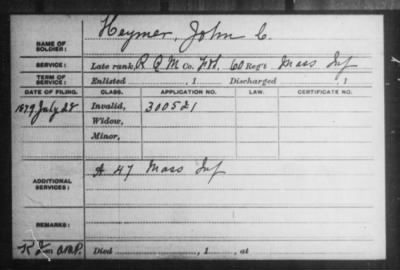 NAME OF SOLDIER: Heymer, John C.
SERVICE: Late rank, R Q M Co. 60 Reg't Mass Inf
TERM OF SERVICE: Enlisted , 1 Discharged , 1
DATE OF FILING. CLASS. APPLICATION NO. LAW. CERTIFICATE NO.
1879 July 28 Invalid, 300521
Widow,
Minor,
ADDITIONAL SERVICES: A 47 Mass Inf
REMARKS:
Died , 1 , at